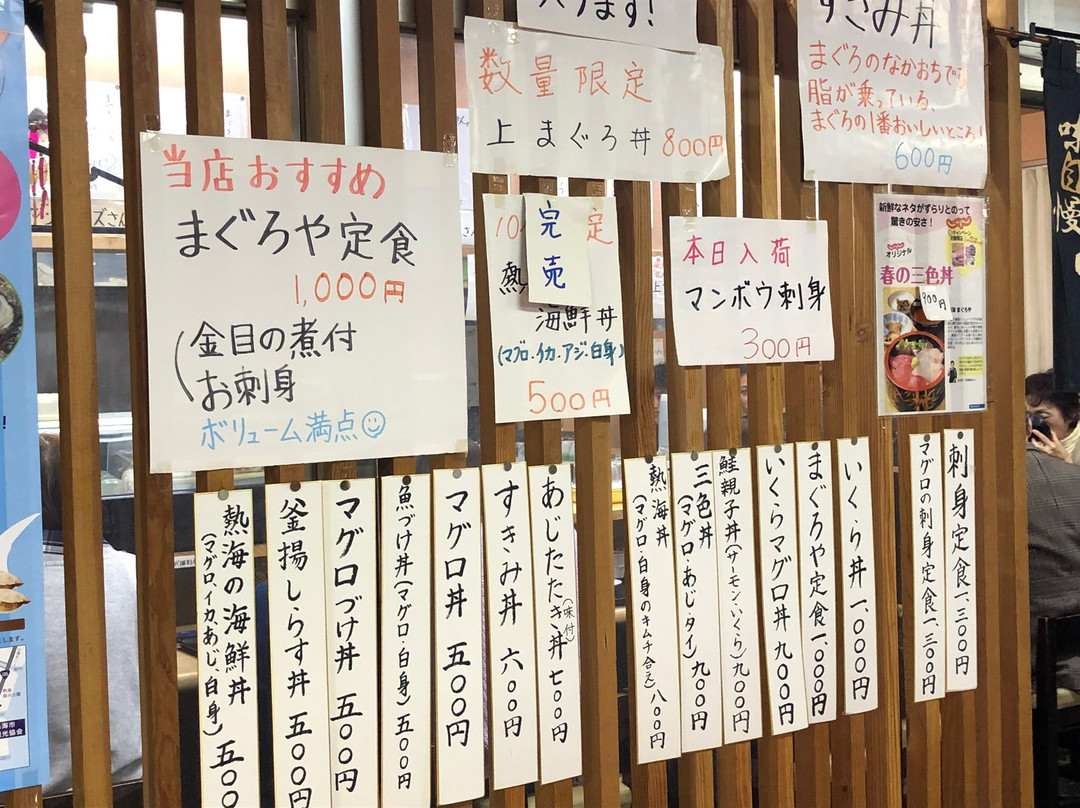 ります!
数量限定
上まぐろ丼 800円
すきみ丼
まぐろのなかおちです
脂が乗っている、
まぐろの1番おいしいところ!
600円
当店おすすめ
まぐろや定食
1,000円
金目の煮付
お刺身
ボリューム満点
完売
定
海鮮丼
(マグロ、イカ、アジ、白身)
500円
本日入荷
マンボウ刺身
300円
新鮮なネタがずらりとのって
驚きの安さ!
オリジナル
春の三色丼
900円
味自慢
刺身定食一、三〇〇円
マグロの刺身定食一、三〇〇円
いくら丼 一、〇〇〇円
まぐろや定食 一、〇〇〇円
いくらマグロ丼 九〇〇円
鮭親子丼(サーモン・いくら)九〇〇円
三色丼(マグロ・あじ・タイ)九〇〇円
熱海丼(マグロ・白身のキムチ合え)八〇〇円
あじたたき丼(味付)七〇〇円
すきみ丼 六〇〇円
マグロ丼 五〇〇円
魚づけ丼(マグロ・白身)五〇〇円
マグロづけ丼 五〇〇円
釜揚しらす丼 五〇〇円
熱海の海鮮丼(マグロ、イカ、あじ、白身)五〇〇